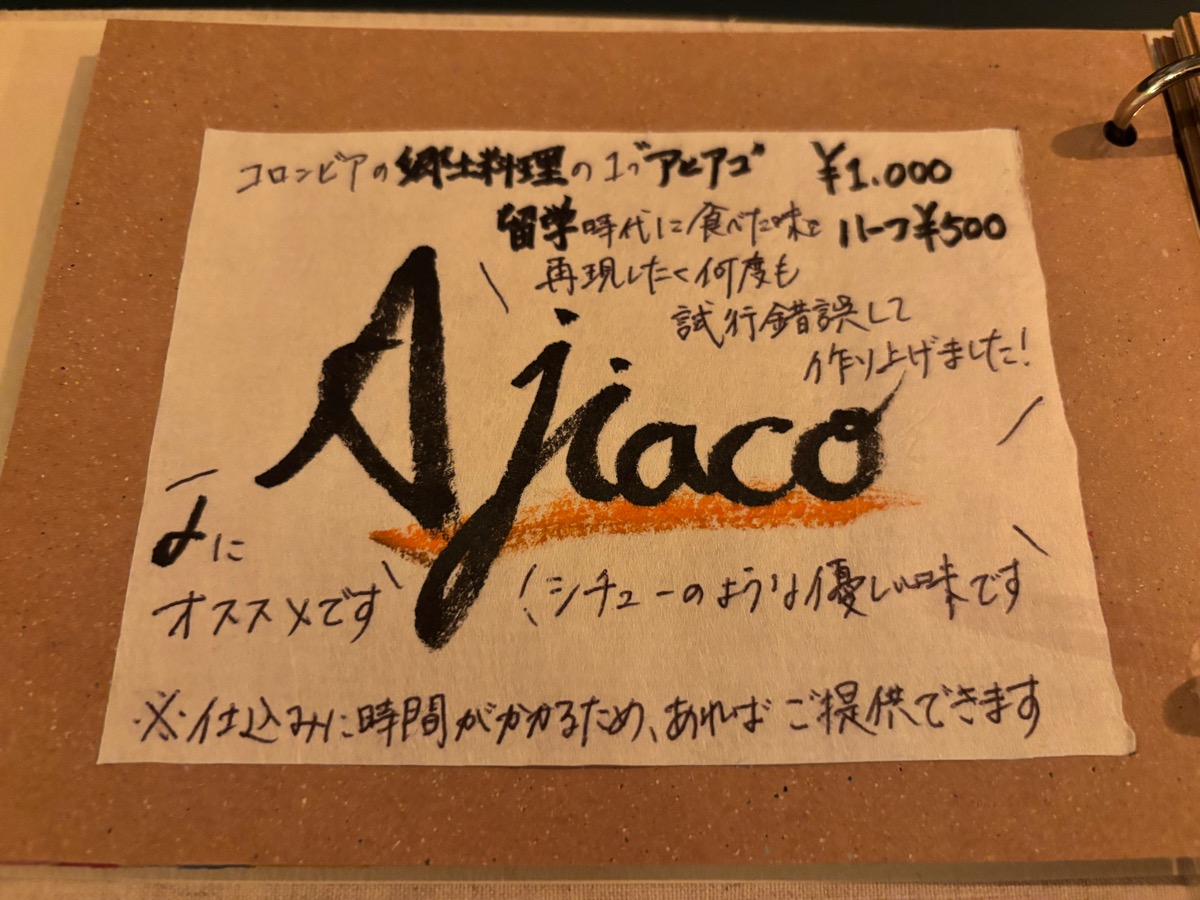 コロンビアの郷土料理の1つ"アヒアコ" ¥1.000
留学時代に食べた味を ハーフ¥500
再現したく何度も
試行錯誤して
作り上げました!
Ajiaco
に
オススメです
シチューのような優しい味です
※仕込みに時間がかかるため、あればご提供できます